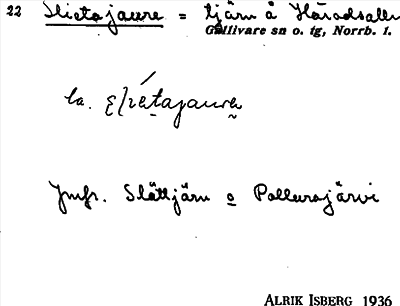 22 Slietajaure = tjärn å Häradsallm
Gällivare sn o. tg, Norrb. l.
la.
Jmfr. Slättjärn o Pollewsjärvi
ALRIK ISBERG 1936